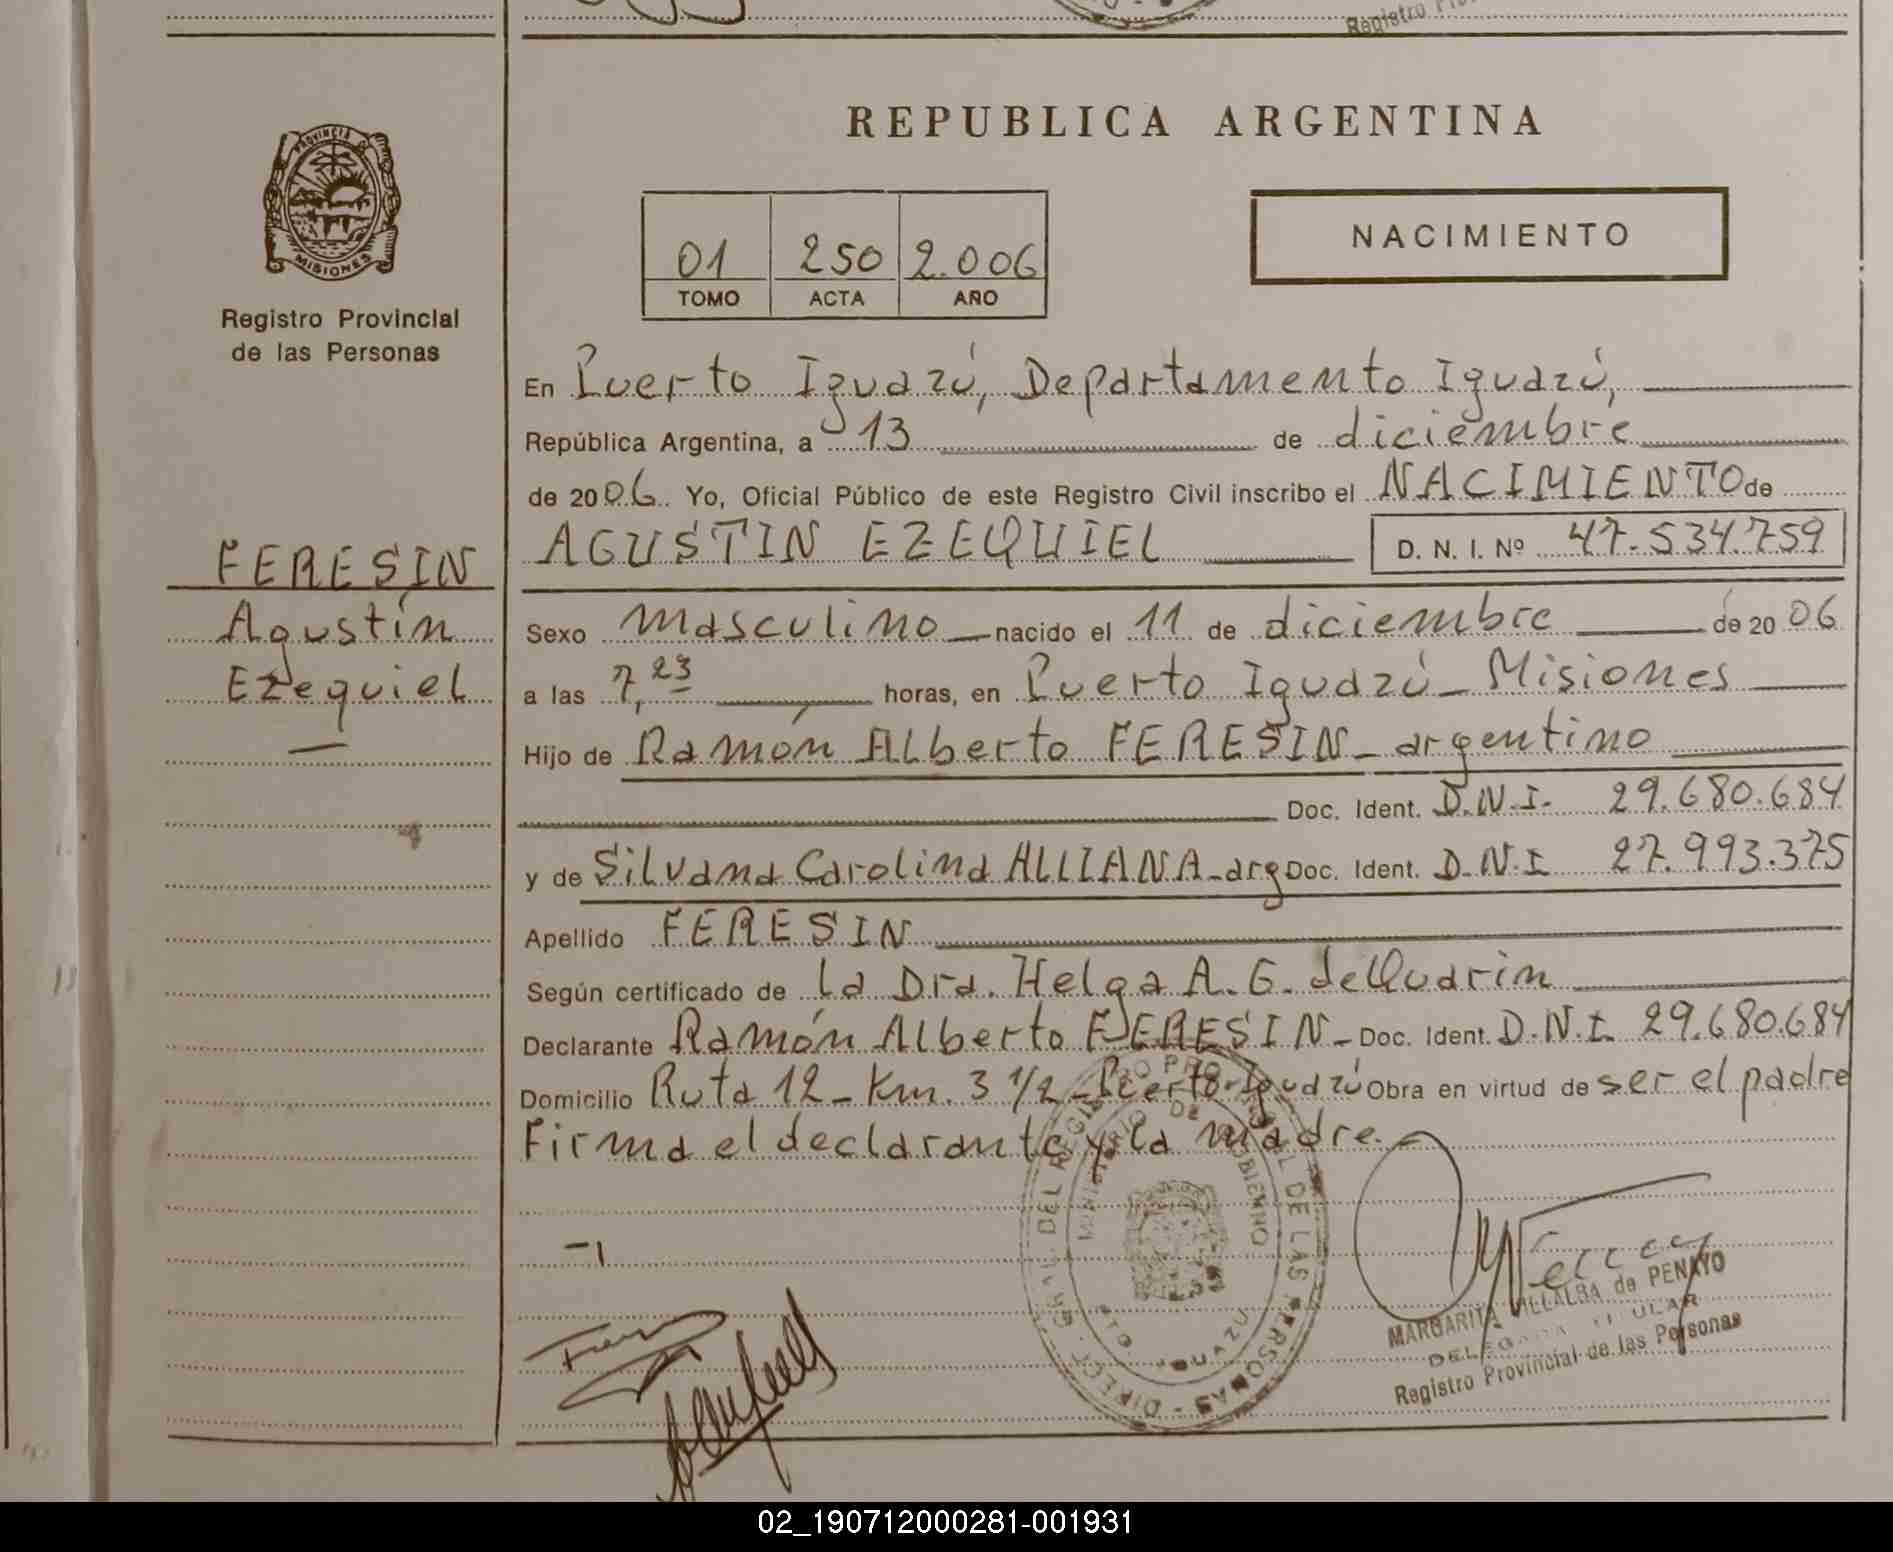 Registro Pro
REPUBLICA ARGENTINA
PROVINCIA
MISIONES
Registro Provincial
de las Personas
FERESIN
Agustín
Ezequiel
01 250 2.006
TOMO ACTA AÑO
NACIMIENTO
En Puerto Iguazú, Departamento Iguazú,
República Argentina, a 13 de diciembre
de 2006. Yo, Oficial Público de este Registro Civil inscribo el NACIMIENTO de
AGUSTIN EZEQUIEL D. N. I. Nº 47.534.759
Sexo masculino nacido el 11 de diciembre de 2006
a las 7,23 horas, en Puerto Iguazú - Misiones
Hijo de Ramón Alberto FERESIN - argentino
Doc. Ident. D.N.I. 29.680.684
y de Silvana Carolina ALLIANA - arg Doc. Ident. D.N.I 27.993.375
Apellido FERESIN
Según certificado de la Dra. Helga A. G. de Quarin
Declarante Ramón Alberto FERESIN - Doc. Ident. D.N.I. 29.680.684
Domicilio Ruta 12 - Km. 3 1/2 - Puerto Iguazú Obra en virtud de ser el padre
Firma el declarante y la madre. -
MARGARITA VILLALBA de PENAYO
DELEGADA TITULAR
Registro Provincial de las Personas
02_190712000281-001931